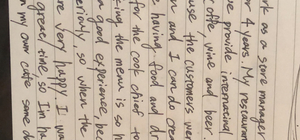 rk as a store manager
r 4 years. My restauran
e provide internacind
coffe, wine and beer
use the customers wer
n and I can do crea
having food and dr
for the cook chief to
king the menu is so h
a good experience, pec
eriously, so when the
re very happy. I was
greact time, so I'm ha
n my own cafe same d